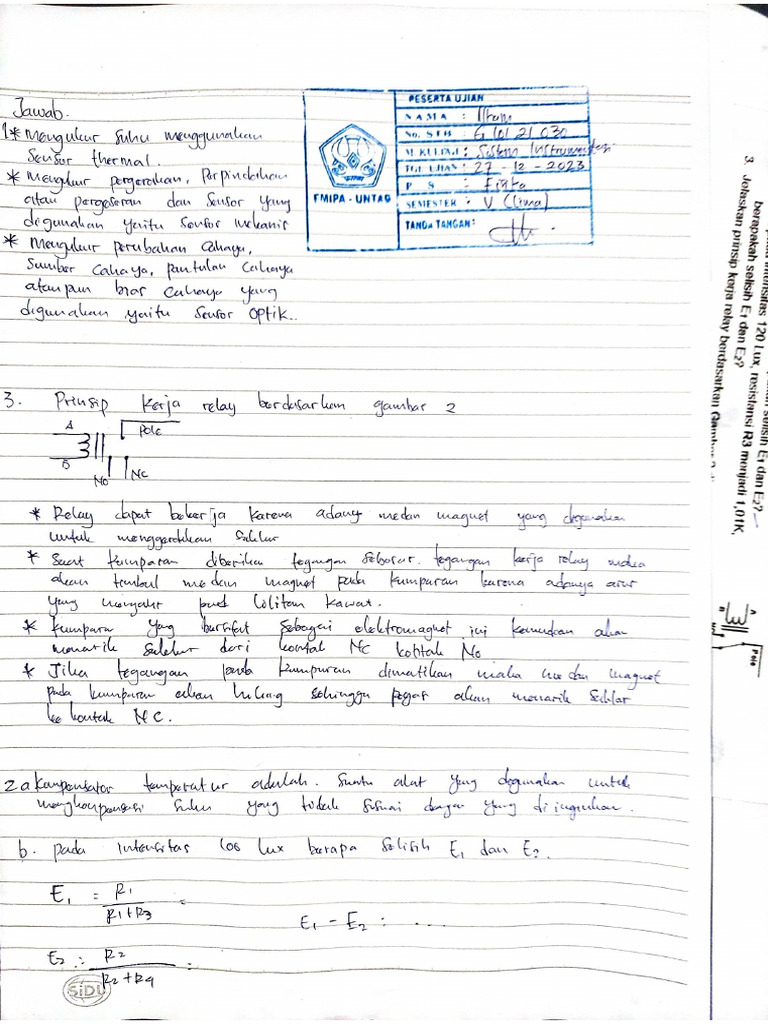 Jawab.
1 * Mengukur suhu menggunakan
Sensor thermal.
* Mengukur pergerakan, Perpindahan
atau pergeseran dan Sensor yang
digunakan yaitu Sensor mekanis
* Mengukur perubahan Cahaya,
Sumber Cahaya, pantulan Cahaya
ataupun bias Cahaya yang
digunakan yaitu Sensor Optik..
FMIPA - UNTAD
PESERTA UJIAN
NAMA : Ilham
No. STB :
M. KULIAH : Sistem Instrumentasi
TGL UJIAN : 27 - 12 - 2023
P S : Fisika
SEMESTER : V (Lima)
TANDA TANGAN :
3. Prinsip kerja relay berdasarkan gambar 2
A
B
Pole
No
NC
* Relay dapat bekerja karena adanya medan magnet yang digunakan
untuk menggerakkan Saklar
* Saat kumparan diberikan tegangan sebesar tegangan kerja relay maka
akan timbul medan magnet pada kumparan karena adanya arus
yang mengalir pada lolitan kawat.
* kumparan yang bersifat sebagai elektromagnet ini kemudian akan
menarik Saklar dari kontak NC kontak No
* Jika tegangan pada kumparan dimatikan maka medan magnet
pada kumparan akan hilang sehingga pegas akan menarik Saklar
ke kontak NC.
2 a kompensator temperatur adalah. Suatu alat yang digunakan untuk
mengkompensasi Suhu yang tidak sesuai dengan yang diinginkan.
b. pada intensitas 100 lux berapa selisih E1 dan E2.
E1 = R1 / R1 + R3 =
E1 - E2 : ....
E2 : R2 / R2 + R4 :
SiDU
selisih E1 dan E2?
intensitas 120 Lux, resistansi R3 menjadi 1,01K,
berapakah selisih E1 dan E2?
3. Jelaskan prinsip kerja relay berdasarkan Gambar 2
A
B
Pole